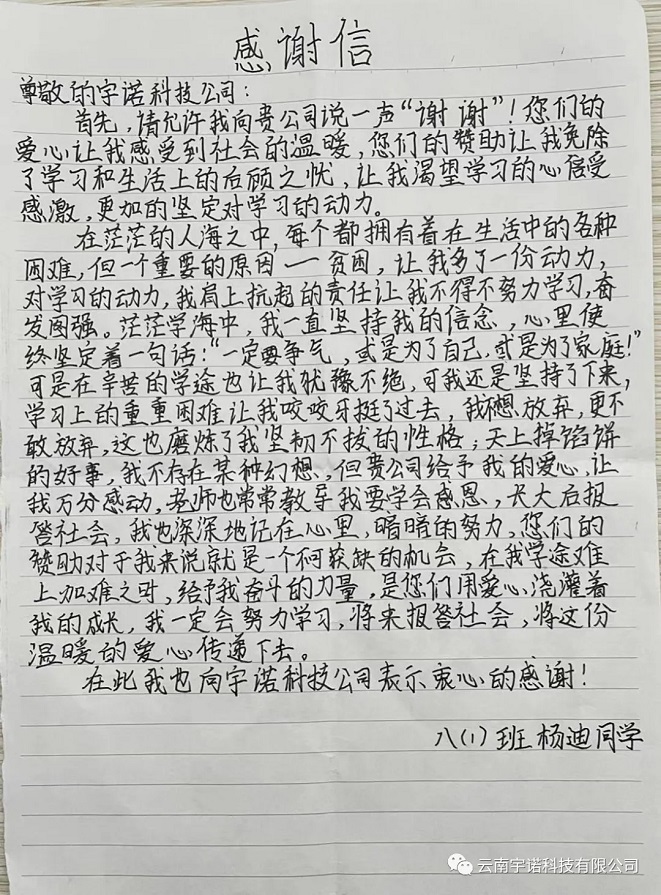 感谢信
尊敬的宇诺科技公司：
首先，请允许我向贵公司说一声“谢谢”！您们的
爱心让我感受到社会的温暖，您们的赞助让我免除
了学习和生活上的后顾之忧，让我渴望学习的心倍受
感激，更加的坚定对学习的动力。
在茫茫的人海之中，每个都拥有着在生活中的各种
困难，但一个重要的原因一贫困，让我多了一份动力，
对学习的动力，我肩上抗起的责任让我不得不努力学习，奋
发图强。茫茫学海中，我一直坚持我的信念，心里使
终坚定着一句话：“一定要争气，或是为了自己，或是为了家庭！”
可是在辛苦的学途也让我犹豫不绝，可我还是坚持了下来，
学习上的重重困难让我咬咬牙挺了过去，我不想放弃，更不
敢放弃，这也磨炼了我坚韧不拔的性格，天上掉馅饼
的好事，我不存在某种幻想，但贵公司给予我的爱心，让
我万分感动，老师也常常教导我要学会感恩，长大后报
答社会，我也深深地记在心里，暗暗的努力，您们的
赞助对于我来说就是一个不可获缺的机会，在我学途难
上加难之时，给予我奋斗的力量，是您们用爱心浇灌着
我的成长，我一定会努力学习，将来报答社会，将这份
温暖的爱心传递下去。
在此我也向宇诺科技公司表示衷心的感谢！
八(1)班 杨迪同学
云南宇诺科技有限公司